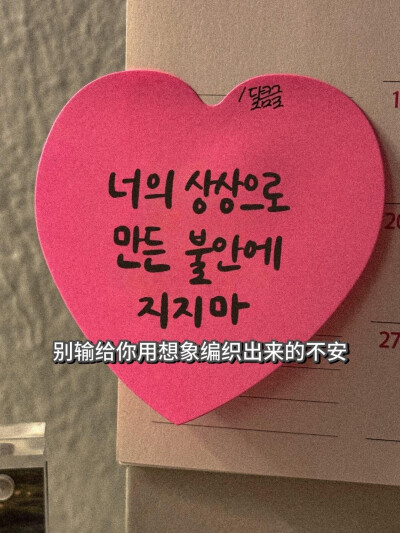 너의 상상으로
만든 불안에
지지마
别输给你用想象编织出来的不安
1
20
27